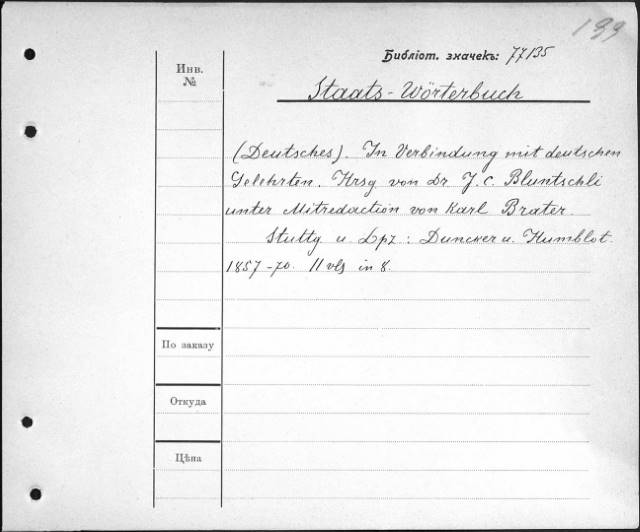 199
Библіот. значекъ: 77135
Инв.
№
Staats-Wörterbuch
(Deutsches). In Verbindung mit deutschen
Gelehrten. Hrsg von Dr J. C. Bluntschli
unter Mitredaction von Karl Brater.
Stuttg u. Lpz: Duncker u. Humblot.
1857-70. 11 vls in 8.
По заказу
Откуда
Цѣна